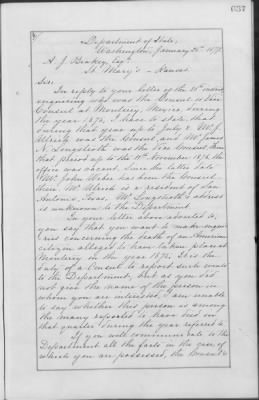 637
Department of State,
Washington, January 25th 1878.
A. J. Beakey, Esq.
St. Mary's - Kansas.
Sir:
In reply to your letter of the 21st inst.
enquiring who was the Consul or Vice
Consul at Monterey, Mexico, during
the year 1876, I have to state, that
during that year up to July 2, Mr. J.
Ulrich was the Consul, and Mr. James
N. Langstroth was the Vice Consul. From
that period up to the 11th November 1876, the
office was vacant. Since the latter date
Mr. John Weber has been the Consul
there. Mr. Ulrich is a resident of San
Antonio, Texas. Mr. Langstroth's address
is unknown to the Department.
In your letter above adverted to,
you say that you want to make enqui-
ries concerning the death of an American
citizen alleged to have taken place at
Monterey in the year 1876. It is the
duty of a Consul to report such events
to the Department, but as you did
not give the name of the person in
whom you are interested, I am unable
to say whether this person is among
the many reported to have died in
that quarter during the year referred to.
If you will communicate to the
Department all the facts in the case, of
which you are possessed, the Consul &